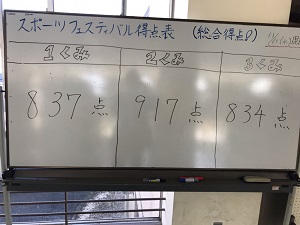 スポーツフェスティバル得点表 (総合得点
1くみ 2くみ 3くみ
837点 917点 834点